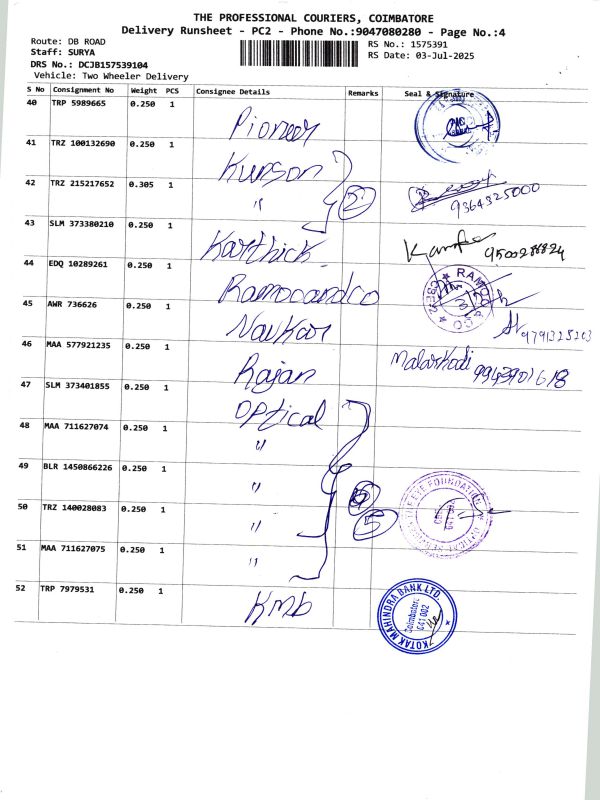 THE PROFESSIONAL COURIERS, COIMBATORE
Delivery Runsheet - PC2 - Phone No.:9047080280 - Page No.:4
Route: DB ROAD
RS No.: 1575391
Staff: SURYA
RS Date: 03-Jul-2025
DRS No.: DCJB157539104
Vehicle: Two Wheeler Delivery
S No Consignment No Weight PCS Consignee Details Remarks Seal & Signature
40 TRP 5989665 0.250 1 Pioneer
41 TRZ 100132690 0.250 1 Kurson
42 TRZ 215217652 0.305 1 " 2 9364325000
43 SLM 373380210 0.250 1 Karthick
44 EDQ 10289261 0.250 1 Ramocandco
45 AWR 736626 0.250 1 Navkar
46 MAA 577921235 0.250 1 Rajan Malarkodi
47 SLM 373401855 0.250 1 Optical
48 MAA 711627074 0.250 1 "
49 BLR 1450866226 0.250 1 "
50 TRZ 140028083 0.250 1 " 5
51 MAA 711627075 0.250 1 "
52 TRP 7979531 0.250 1 KMB
KOTAK MAHINDRA BANK LTD.
Coimbatore
641 002